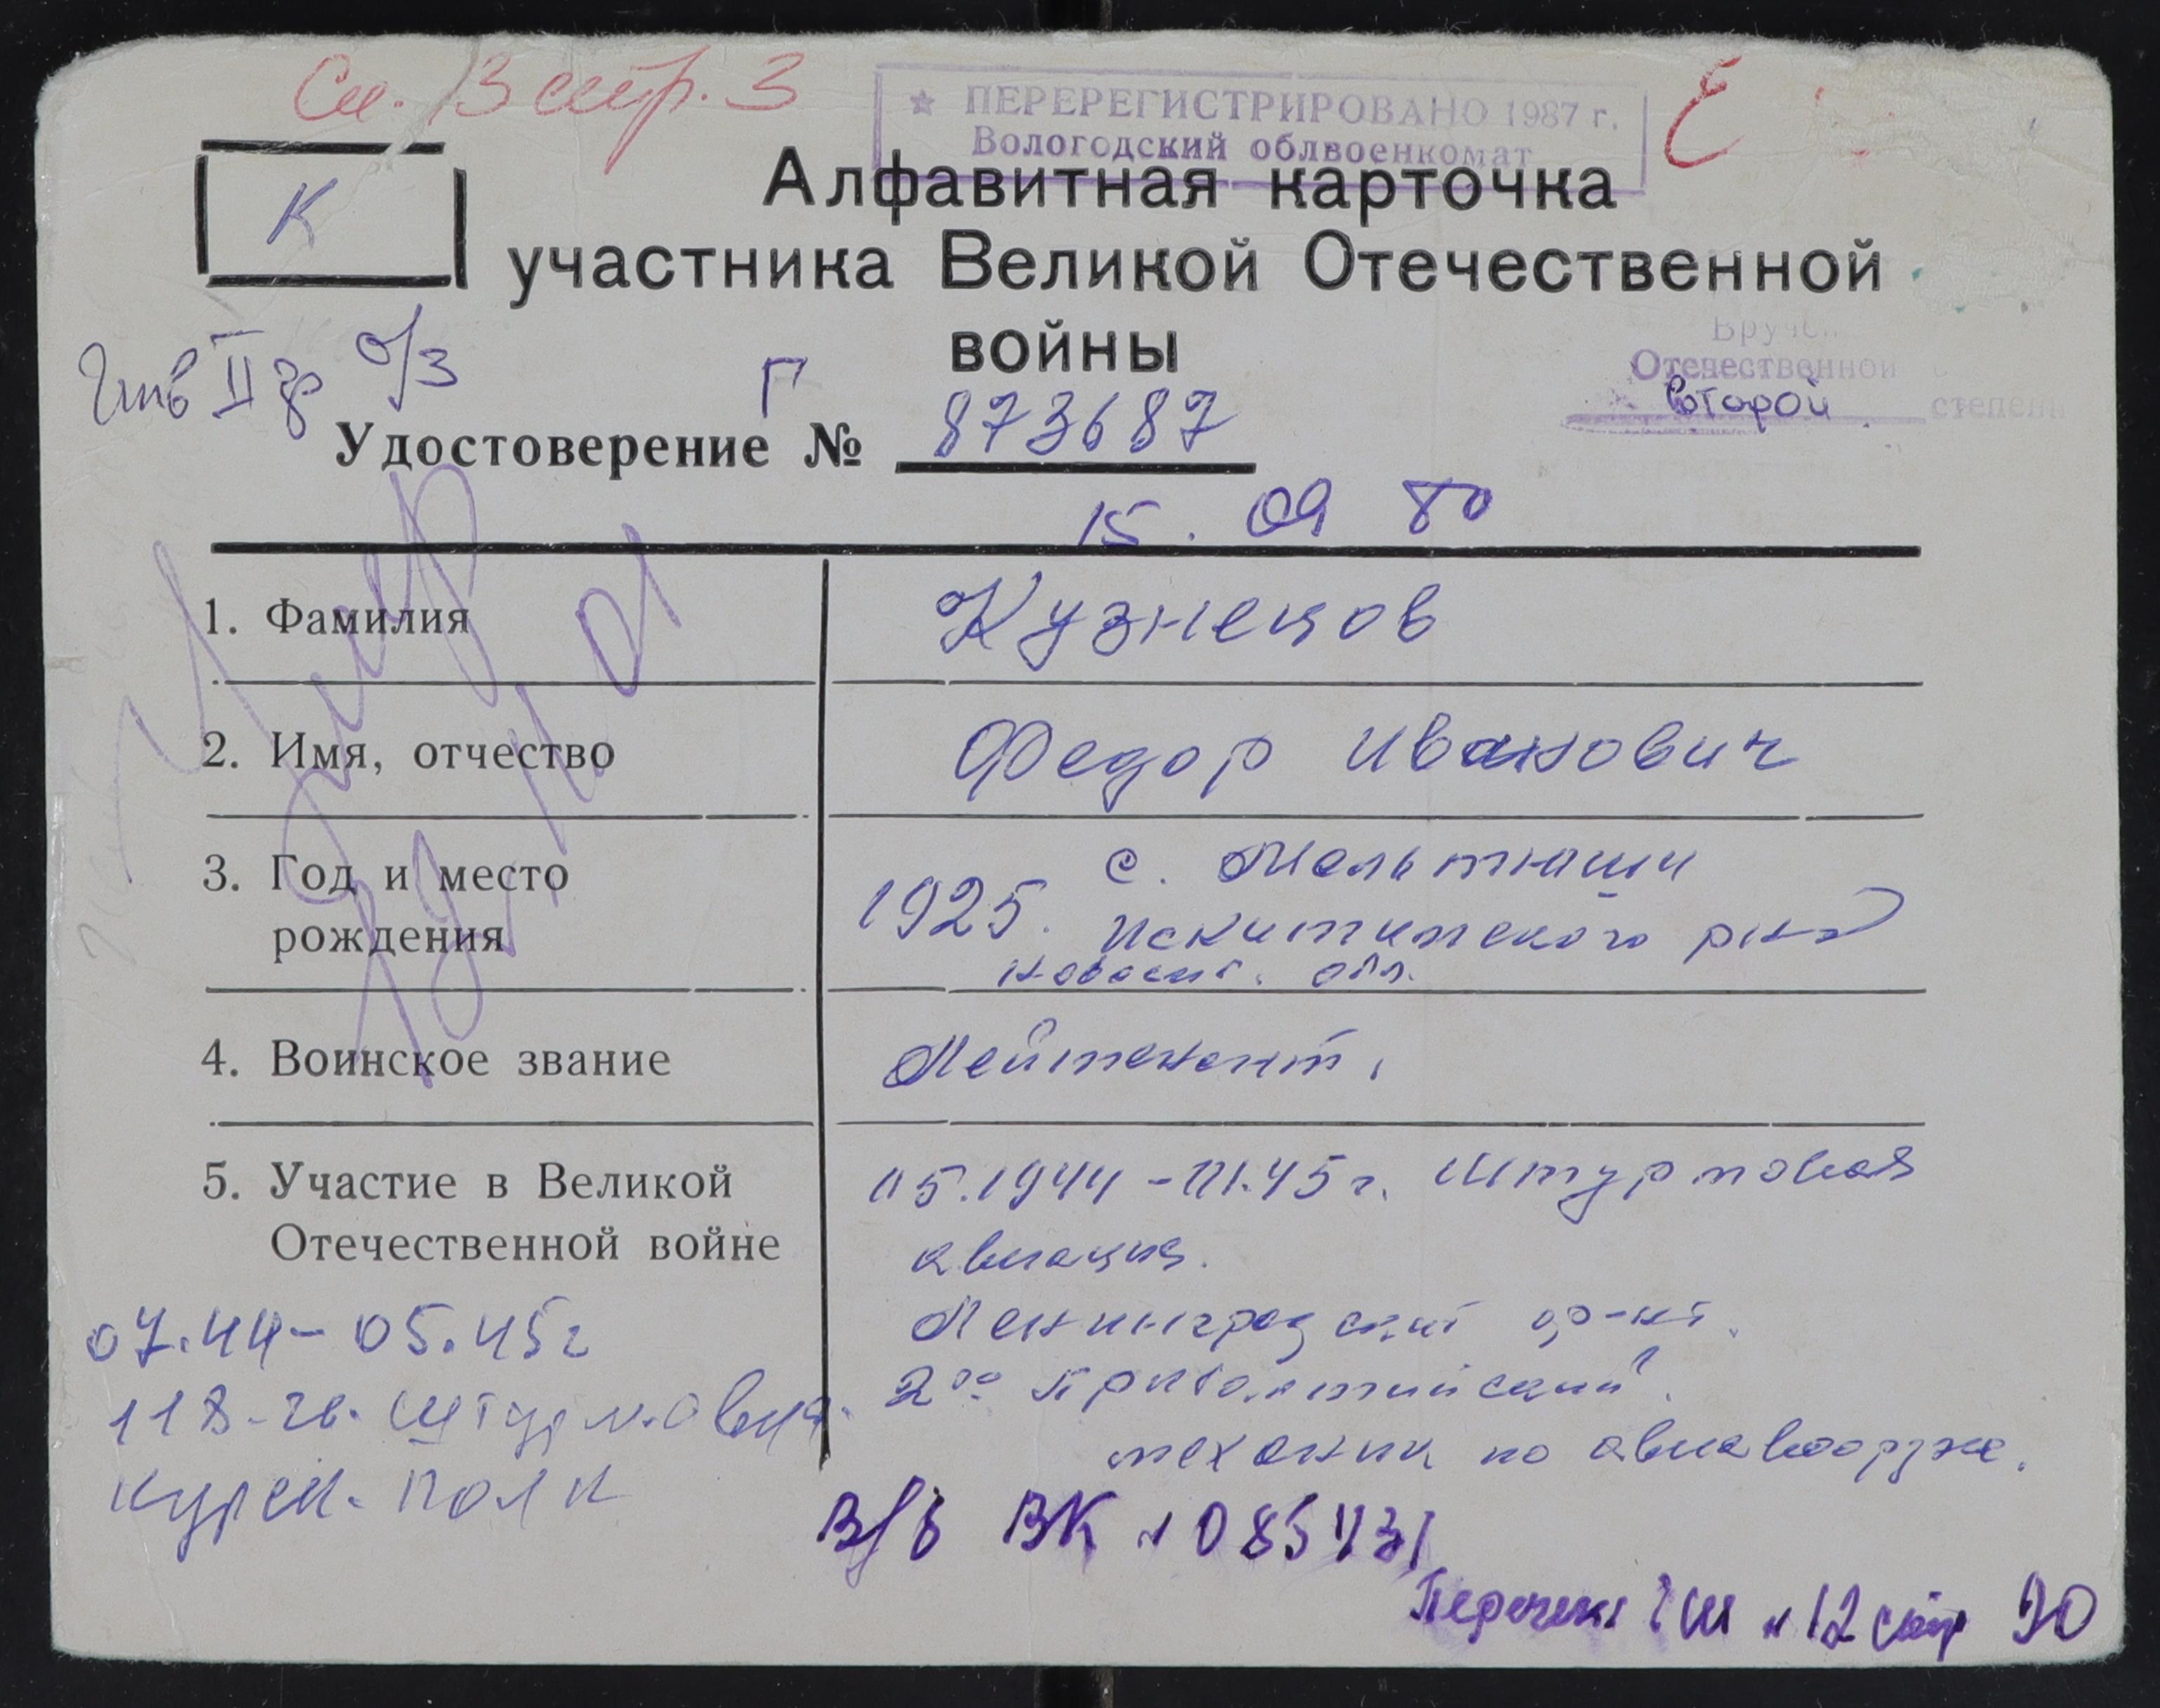 См. В стр. 3
★ ПЕРЕРЕГИСТРИРОВАНО 1987 г.
Вологодский облвоенкомат
Е
К
Алфавитная карточка
участника Великой Отечественной
войны
Инв II гр о/з
Вруче
Отечественной
второй степени
Г
Удостоверение № 873687
15. 09 80
1. Фамилия
Кузнецов
2. Имя, отчество
Федор Иванович
3. Год и место
рождения
1925. с. Мельтюши
Искитимского р-на
Новосиб. обл.
4. Воинское звание
Лейтенант.
5. Участие в Великой
Отечественной войне
05.1944 - 45 г. Штурмовая
авиация.
Ленинградский фр-нт.
2ой Прибалтийский.
механик по авиавооруже.
07.44 - 05.45 г
118-гв. штурм. авиа.
курск. полк
В/б ВК № 085431
Перечень ГШ № 12 стр 90